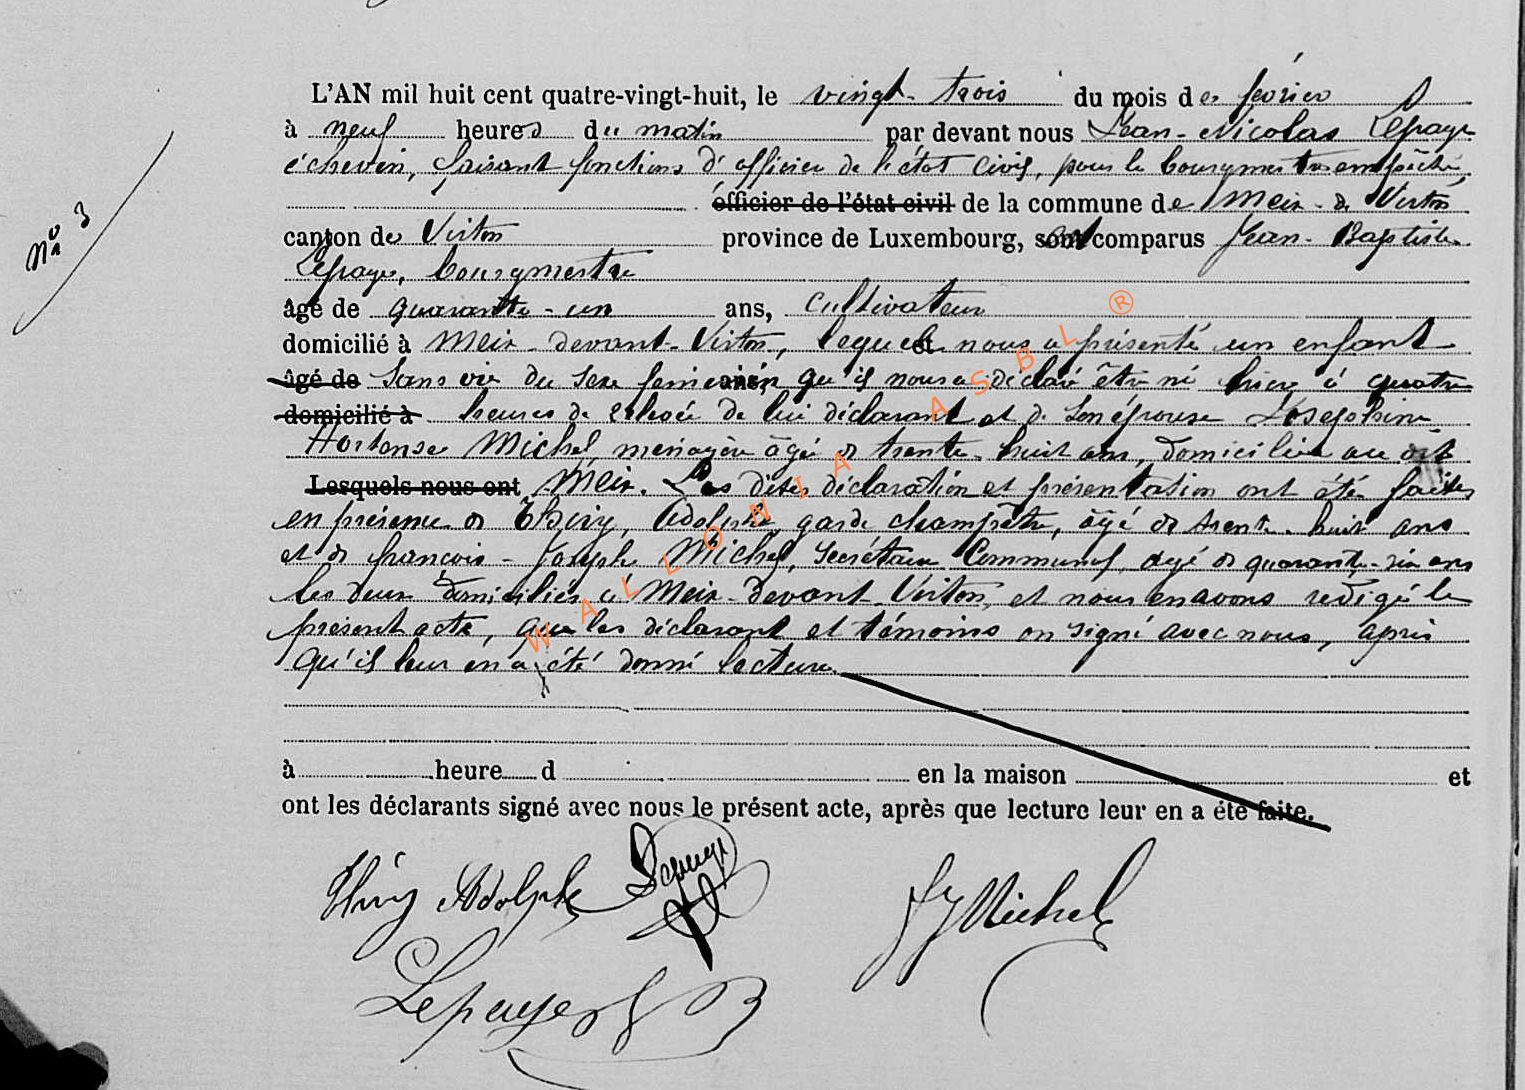 L'AN mil huit cent quatre-vingt-huit, le vingt-trois du mois de février
à neuf heures du matin par devant nous Jean-Nicolas Lepage
échevin, faisant fonctions d'officier de l'état civil, pour le bourgmestre empêché,
officier de l'état civil de la commune de Meix-dt Virton
No 3
canton de Virton province de Luxembourg, sont comparus Jean-Baptiste
Lepage, bourgmestre
âgé de quarante-un ans, cultivateur
domicilié à Meix-devant-Virton, lequel nous a présenté un enfant
âgé de sans vie du sexe féminin, ans, qu'il nous a déclaré être né hier à quatre
domicilié à heures de relevée de lui déclarant et de son épouse Josephine
Hortense Michel, ménagère âgée de trente-huit ans, domiciliée au dit
Lesquels nous ont Meix. Les dites déclaration et présentation ont été faites
en présence de Thiry, Adolphe, garde champêtre, âgé de trente-huit ans
et de françois-Joseph Michel, secrétaire Communal, âgé de quarante-six ans
les deux domiciliés à Meix-devant-Virton, et nous en avons rédigé le
présent acte, que les déclarant et témoins on signé avec nous, après
qu'il leur en a été donné lecture.
à heure d en la maison et
ont les déclarants signé avec nous le présent acte, après que lecture leur en a été faite.
Thiry Adolphe Lepage FJ Michel
Lepage JB
WALLONIA ASBL ®